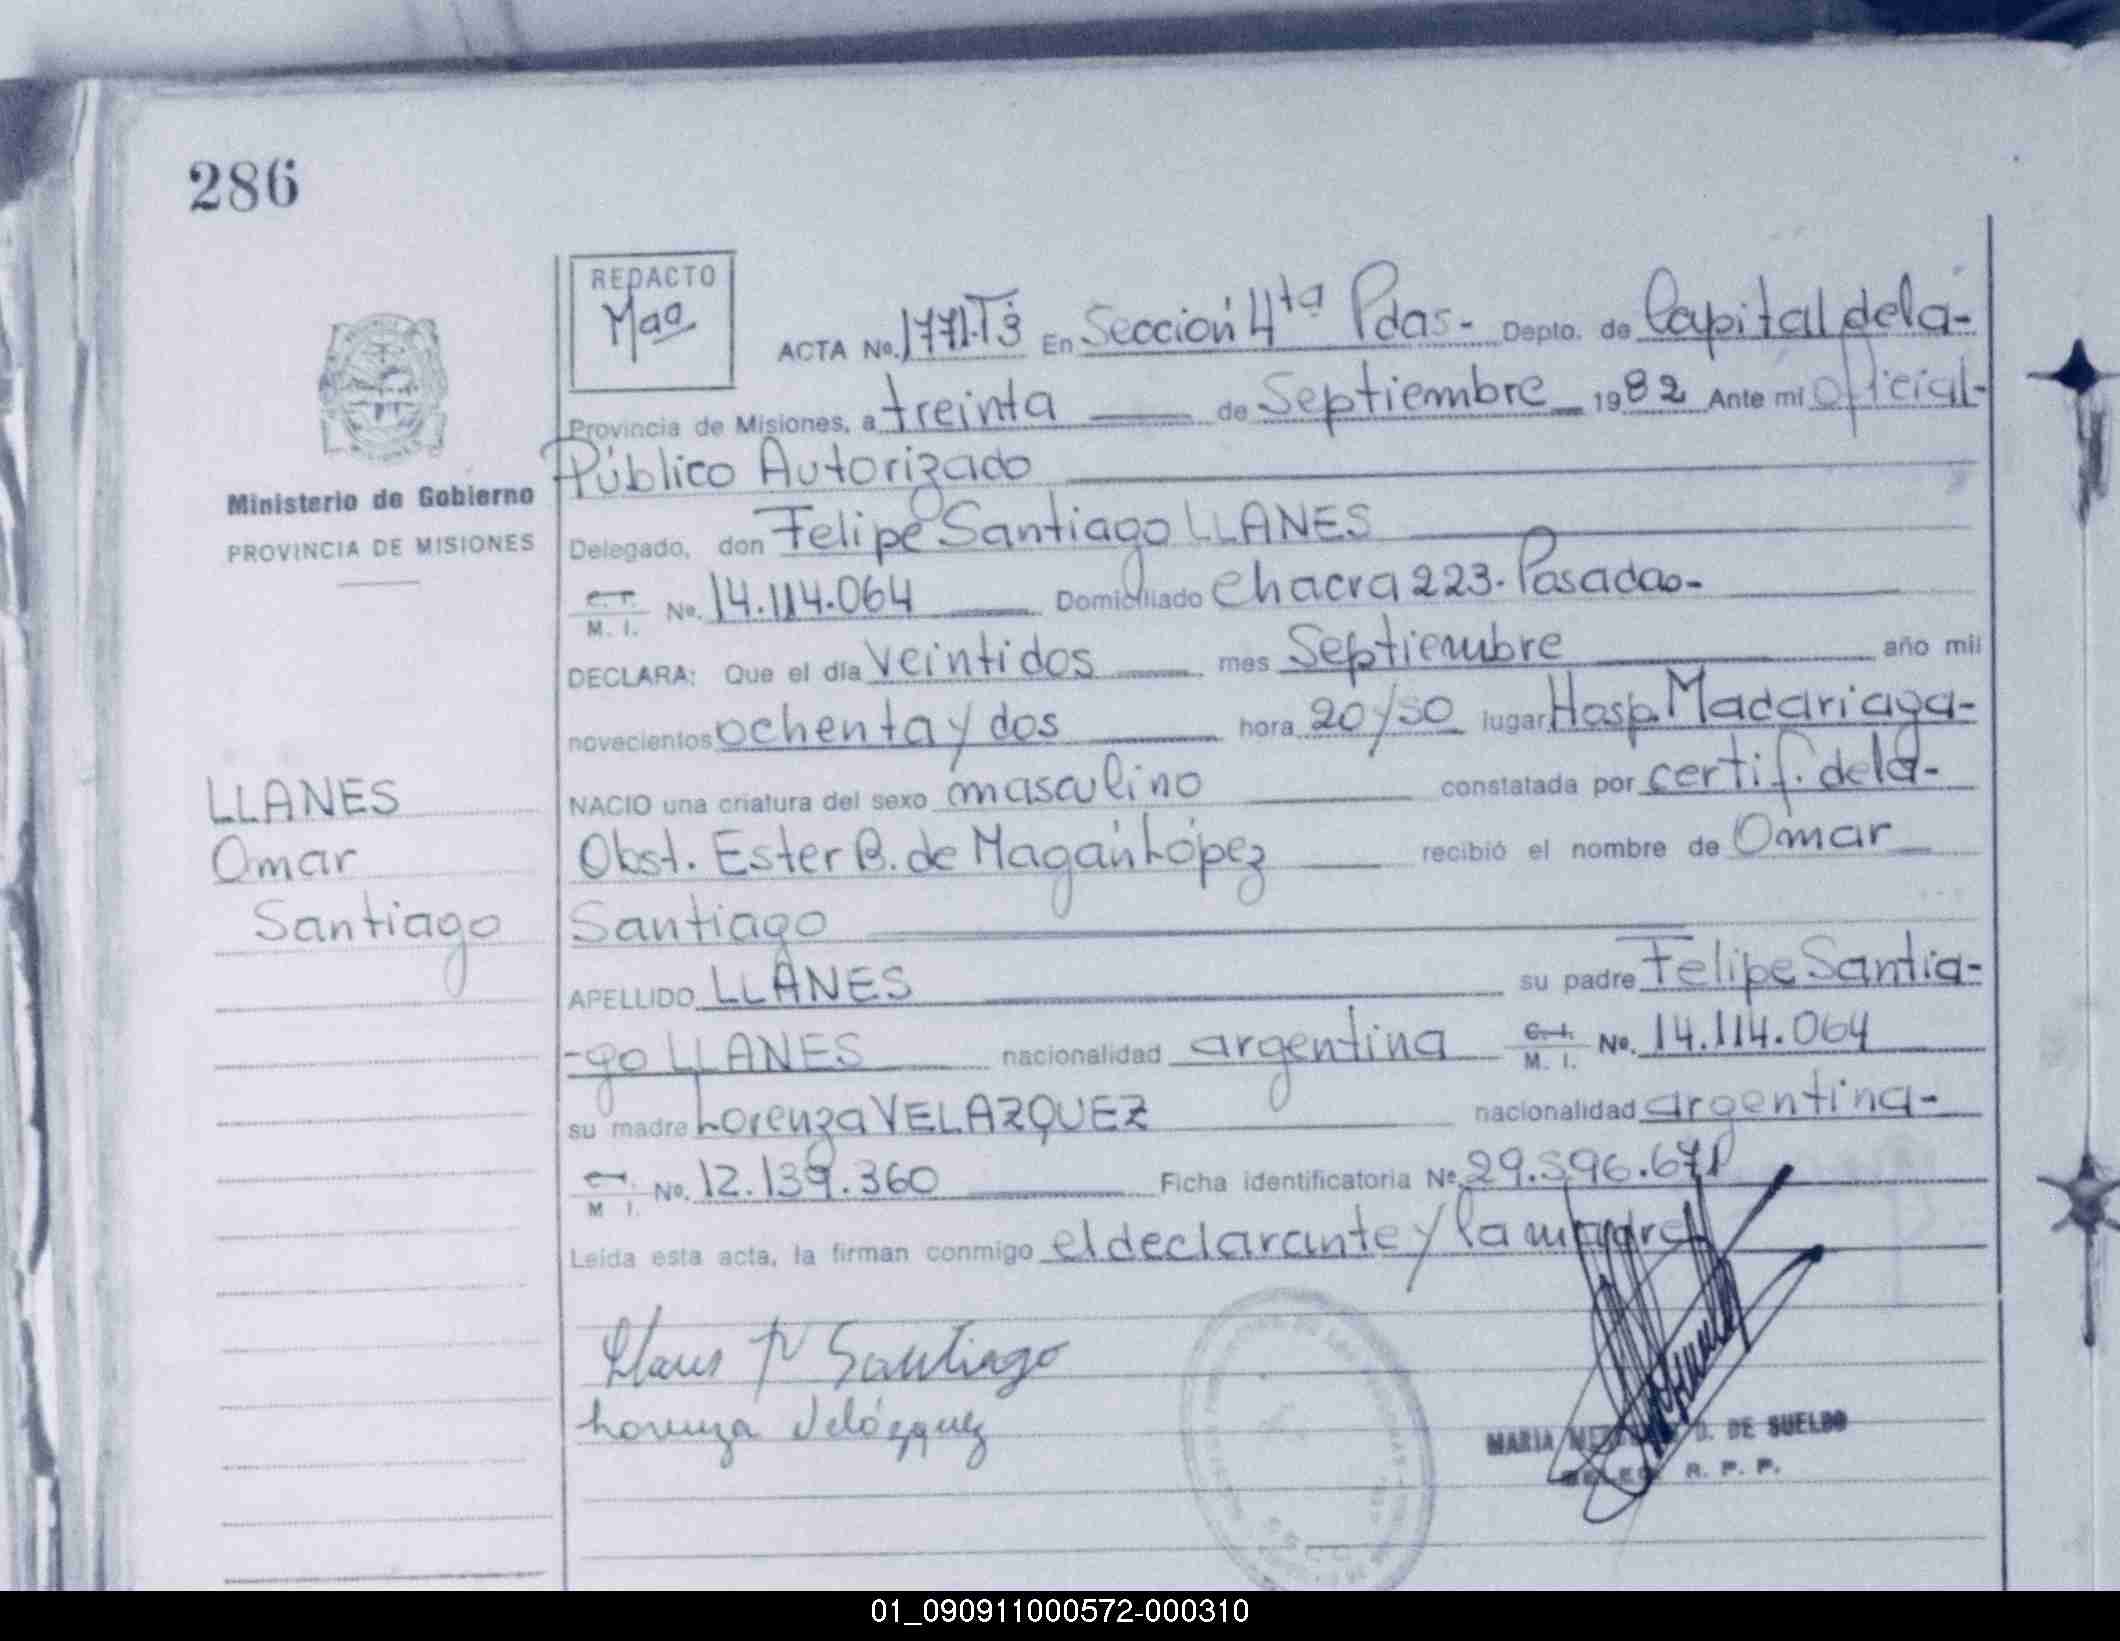 286
REDACTO
Maa
ACTA No. 1771.T3 En Sección 4ta Pdas- Depto. de Capital de la-
Provincia de Misiones, a treinta de Septiembre 1982 Ante mi oficial-
Público Autorizado
Ministerio de Gobierno
PROVINCIA DE MISIONES
Delegado, don Felipe Santiago LLANES
M. I. No. 14.114.064 Domiciliado Chacra 223. Posadas-
DECLARA: Que el día veintidos mes Septiembre año mil
novecientos ochenta y dos hora 20/50 lugar Hosp. Madariaga-
LLANES
Omar
Santiago
NACIO una criatura del sexo masculino constatada por certif. de la-
Obst. Ester B. de Magán López recibió el nombre de Omar
Santiago
APELLIDO LLANES su padre Felipe Santia-
-go LLANES nacionalidad argentina C.I. M. I. No. 14.114.064
su madre Lorenza VELAZQUEZ nacionalidad argentina-
M I. No. 12.139.360 Ficha identificatoria No. 29.596.671
Leída esta acta, la firman conmigo el declarante y la madre
Llanes F Santiago
Lorenza Velázquez
MARIA D. DE SUELDO
R. P. P.
01_090911000572-000310